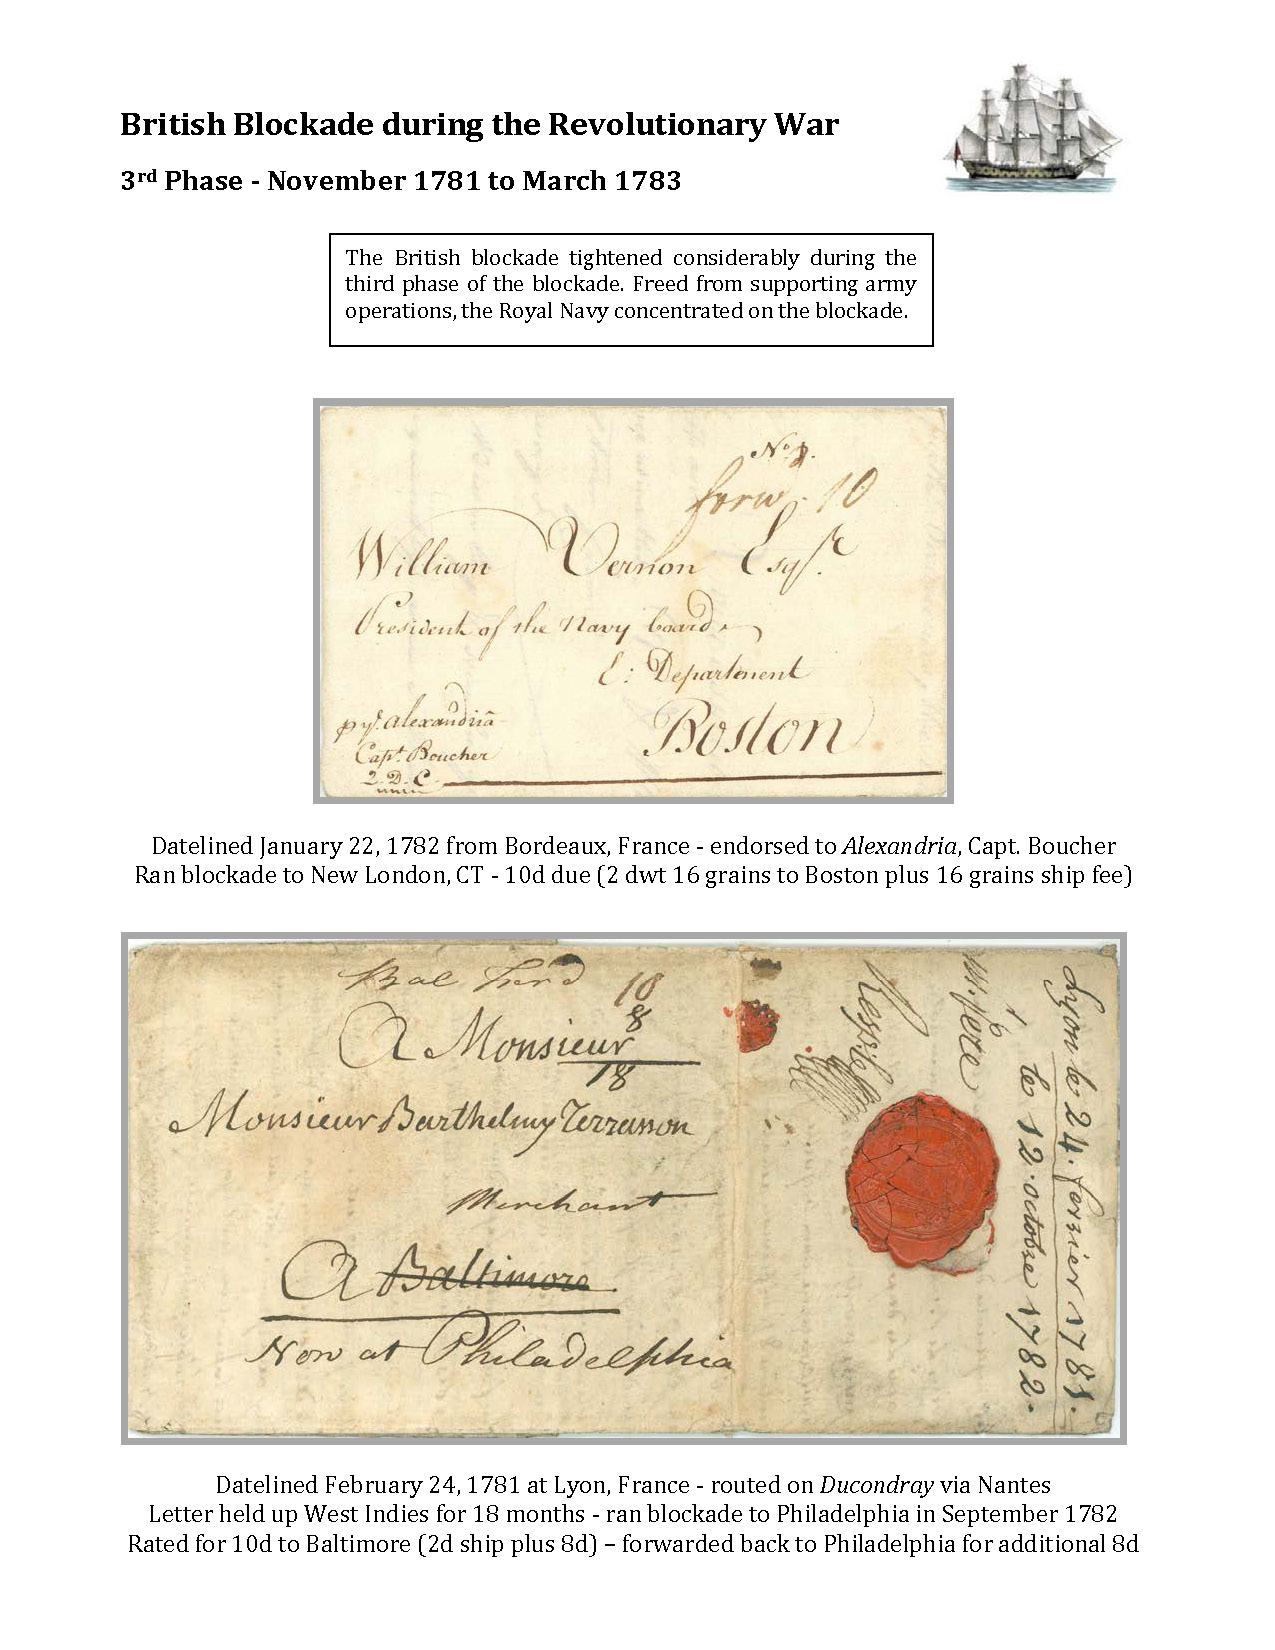 British Blockade during the Revolutionary War
3rd Phase - November 1781 to March 1783
The British blockade tightened considerably during the
third phase of the blockade. Freed from supporting army
operations, the Royal Navy concentrated on the blockade.
No
forwd 10
William Vernon Esqr.
President of the Navy board
E: Department
Boston
p yr. Alexandria
Capt. Boucher
2. D. C
Datelined January 22, 1782 from Bordeaux, France - endorsed to Alexandria, Capt. Boucher
Ran blockade to New London, CT - 10d due (2 dwt 16 grains to Boston plus 16 grains ship fee)
Bal 10
8
A Monsieur
18
Monsieur Barthelmy Terrasson
Merchant
A Baltimore
Now at Philadelphia
Lyon le 24. 1781.
le 12. octobre 1782.
Datelined February 24, 1781 at Lyon, France - routed on Ducondray via Nantes
Letter held up West Indies for 18 months - ran blockade to Philadelphia in September 1782
Rated for 10d to Baltimore (2d ship plus 8d) – forwarded back to Philadelphia for additional 8d